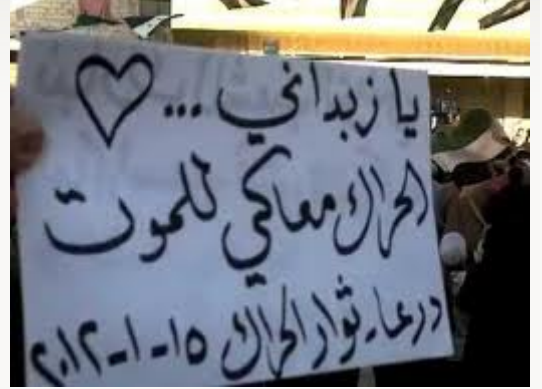 يا زبداني ... ♡
الحراك معاكي للموت
درعا - ثوار الحراك ١٥-١-٢٠١٢م